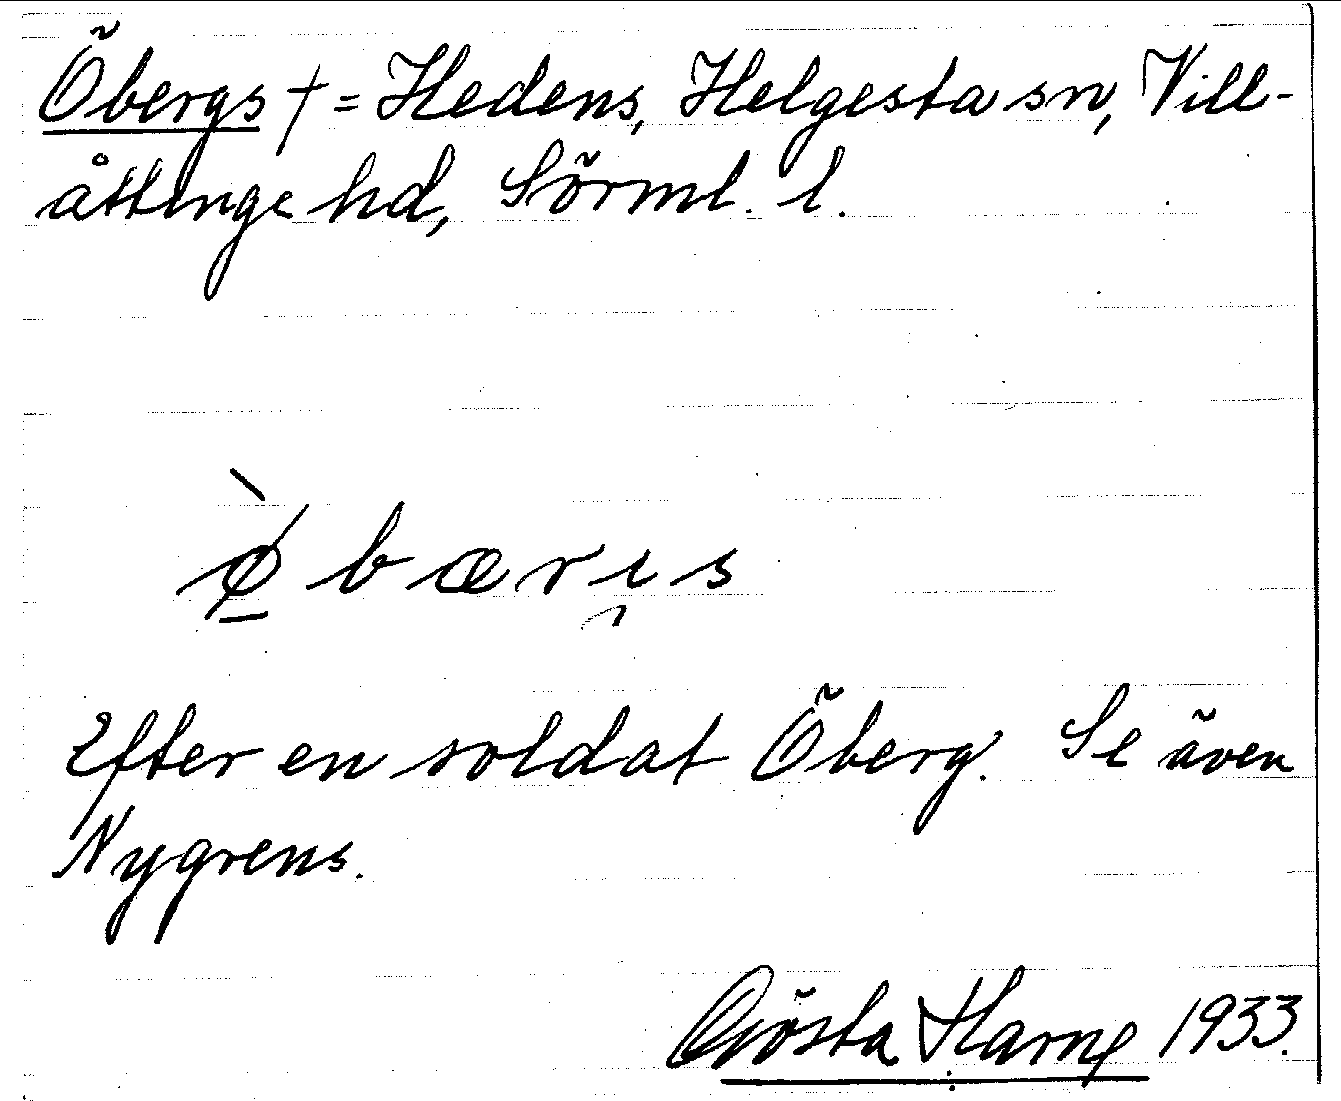 Öbergs † = Hedens, Helgesta sn, Vill-
åttinge hd, Sörml. l.
ø̲̀ b æ r ı̯ s
Efter en soldat Öberg. Se även
Nygrens.
Gösta Harne 1933.